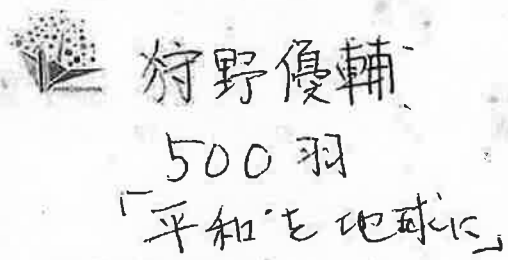 狩野優輔
500羽
「平和を地球に」